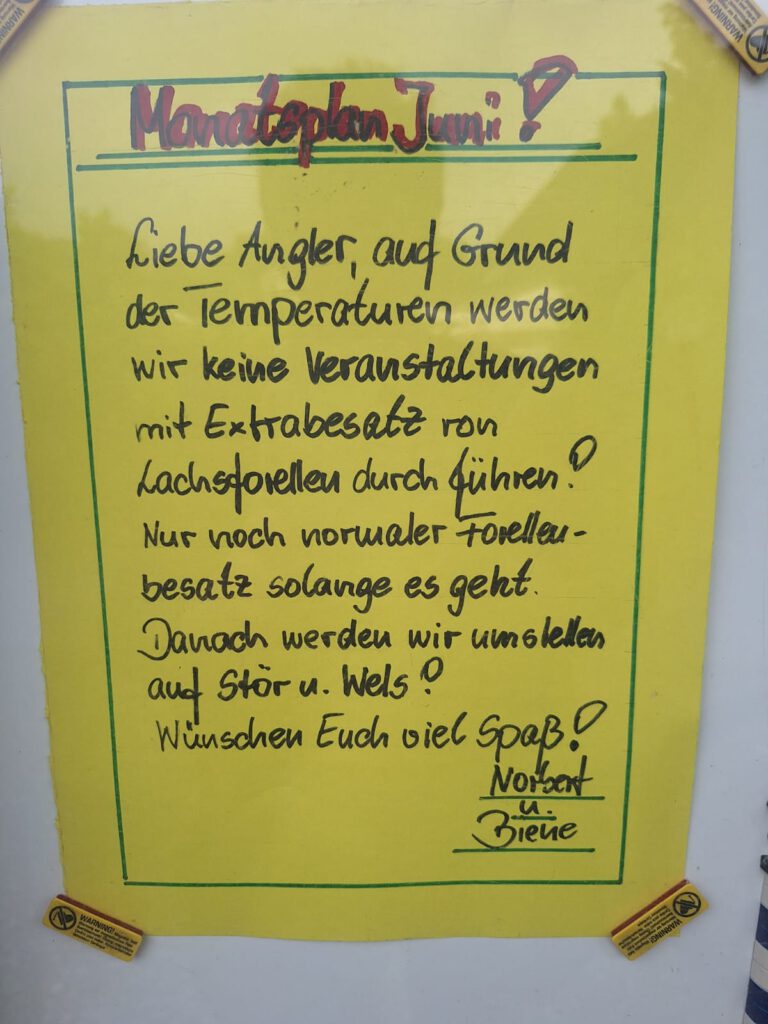 Monatsplan Juni!
Liebe Angler, auf Grund
der Temperaturen werden
wir keine Veranstaltungen
mit Extrabesatz von
Lachsforellen durch führen!
Nur noch normaler Forellen-
besatz solange es geht.
Danach werden wir umstellen
auf Stör u. Wels!
Wünschen Euch viel Spaß!
Norbert
u.
Biene
WARNING!
WARNING!
WARNING!
WARNING!